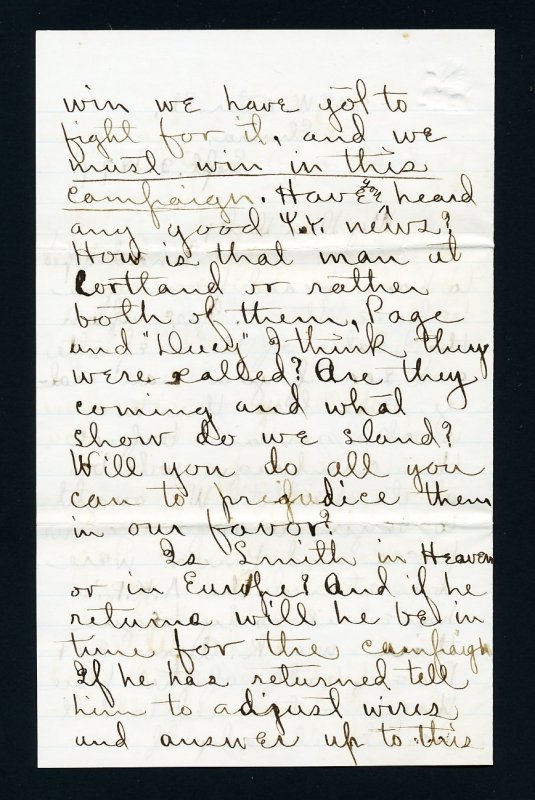 win we have got to
fight for it, and we
must win in this
campaign. Have you heard
any good Y.Y. news?
How is that man at
Cortland or rather
both of them, Page
and "Ducy" I think they
were called? Are they
coming and what
show do we stand?
Will you do all you
can to prejudice them
in our favor?
Is Smith in Heaven
or in Europe? And if he
returns will he be in
time for the campaign
If he has returned tell
him to adjust wires
and answer up to this